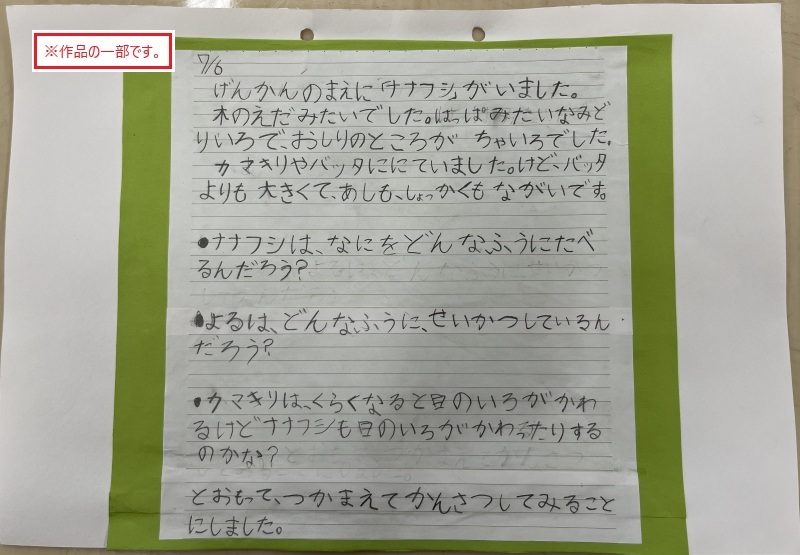 ※作品の一部です。
7/6
げんかんのまえに「ナナフシ」がいました。
木のえだみたいでした。はっぱみたいなみど
りいろで、おしりのところが ちゃいろでした。
カマキリやバッタににていました。けど、バッタ
よりも 大きくて、あしも、しょっかくも ながいです。
●ナナフシは、なにをどんなふうにたべ
るんだろう?
●よるは、どんなふうに、せいかつしているん
だろう?
●カマキリは、くらくなると目のいろがかわ
るけどナナフシも目のいろがかわったりする
のかな?
とおもって、つかまえてかんさつしてみること
にしました。